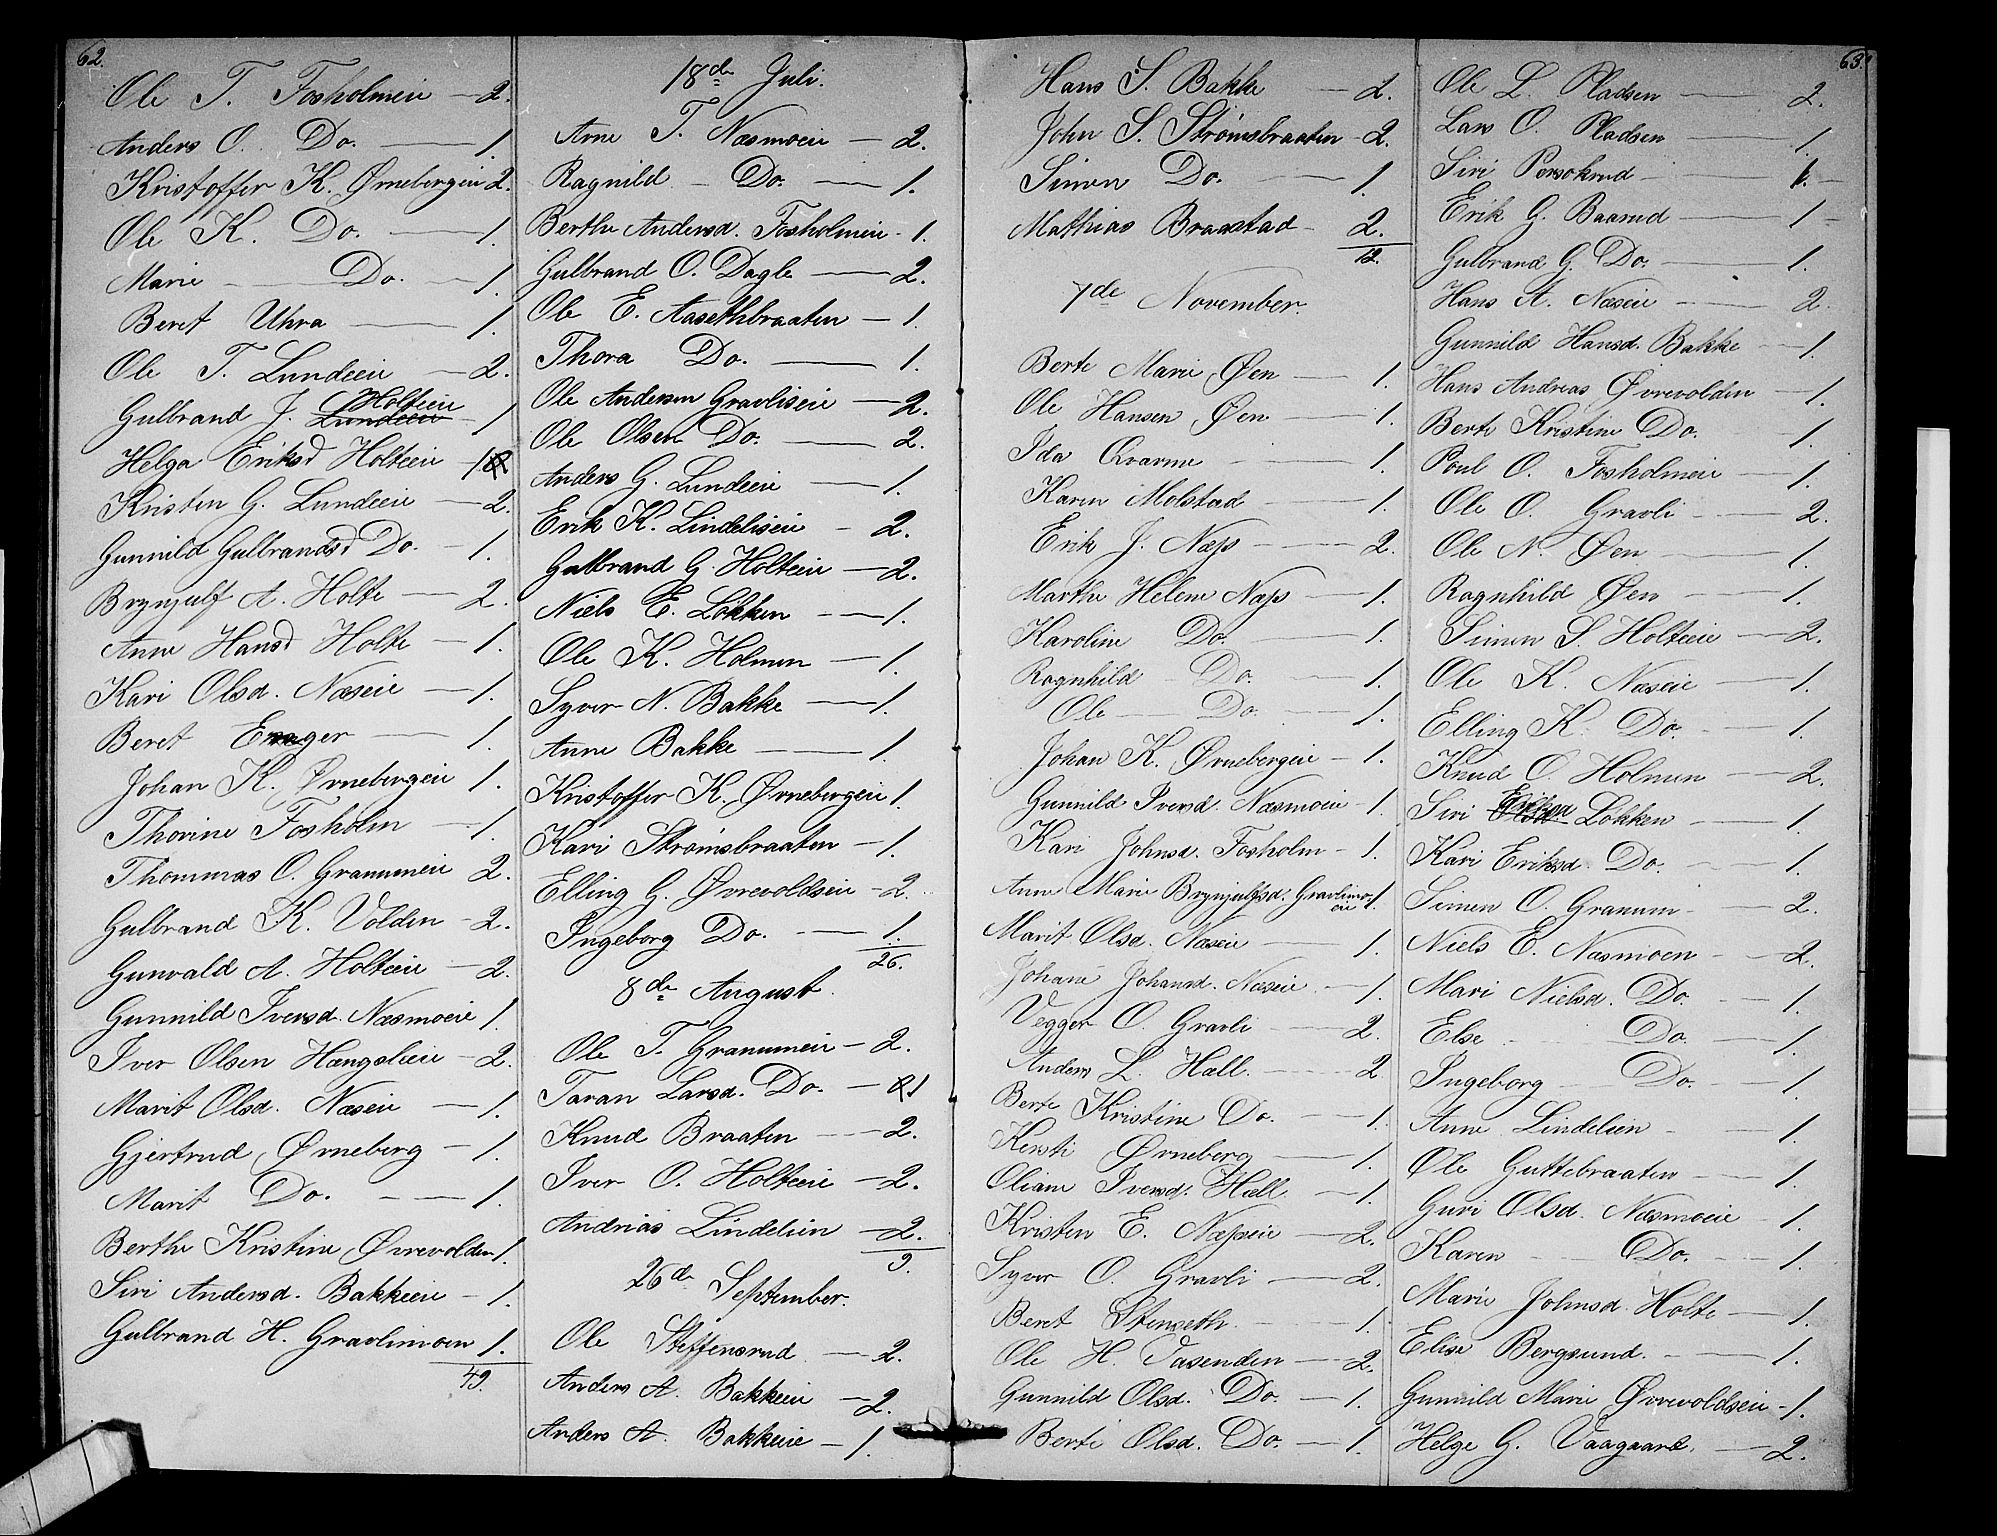 62.
Ole T. Fosholmeie — 2.
Anders O. Do. — 1.
Kristoffer K. Ørnebergeie 2.
Ole K. Do. — 1.
Marie — Do. — 1.
Beret Uhra — 1.
Ole T. Lundeeie — 2.
Gulbrand J. Lundeeie Holteeie — 1
Helga Eriksd Holteeie — 1
Kristen G. Lundeeie — 2.
Gunnild Gulbrandsd Do. — 1.
Brynjulf A. Holte — 2.
Anne Hansd Holte — 1.
Kari Olsd. Næseie — 1.
Beret Enger — 1.
Johan K. Ørnebergeie 1.
Thorine Fosholm — 1.
Thommas O. Granumeie 2.
Gulbrand K. Volden — 2.
Gunvald A. Holteeie — 2.
Gunnild Iversd. Næsmoeie 1.
Iver Olsen Hængslieie — 2.
Marit Olsd. Næseie — 1.
Gjertrud Ørneberg — 1.
Marit Do. — 1.
Berthe Kristine Øvrevolden 1.
Siri Andersd. Bakkeeie — 1.
Gulbrand H. Gravlimoen 1.
49.
18de Juli.
Arne T. Næsmoeie — 2.
Ragnild — Do. — 1.
Berthe Andersd. Fosholmeie — 1.
Gulbrand O. Dagle — 2.
Ole E. Aasethbraaten — 1.
Thora Do. — 1.
Ole Andersen Gravliseie — 2.
Ole Olsen Do. — 2.
Anders G. Lundeeie — 1.
Erik K. Lindeliseie — 2.
Gulbrand G. Holteeie — 2.
Niels E. Løkken — 1.
Ole K. Holmen — 1.
Syver N. Bakke — 1.
Anne Bakke — 1.
Kristoffer K. Ørnebergeie 1.
Kari Strømsbraaten — 1.
Elling G. Øvrevoldseie — 2.
Ingeborg Do. — 1.
26.
8de August.
Ole T. Granumeie — 2.
Taran Larsd. Do. — 1
Knud Braaten — 2.
Iver O. Holteeie — 2.
Andrias Lindelien — 2.
9.
26de September.
Ole Steffensrud — 2.
Anders A. Bakkeeie — 2.
Anders A. Bakkeeie — 1.
Hans S. Bakke — 2.
John S. Strømsbraaten — 2.
Simen Do. — 1.
Mathias Braastad — 2.
12.
7de November.
Berte Marie Øen — 1.
Ole Hansen Øen — 1.
Ida Qvarme — 1.
Karen Molstad — 1.
Erik J. Næss — 2.
Marthe Helene Næss — 1.
Karoline Do. — 1.
Ragnhild Do. — 1.
Ole — Do. — 1.
Johan K. Ørnebergeie — 1.
Gunnild Iversd. Næsmoeie — 1.
Kari Johnsd. Fosholm — 1.
Anne Marie Brynjulfsd. Gravlimoeie 1.
Marit Olsd. Næseie — 1.
Johane Johansd. Næseie — 1.
Vegger O. Gravli — 2.
Anders L. Hall — 2
Berte Kristine Do. — 1.
Kersti Ørneberg — 1.
Oliane Iversd. Hæll — 1.
Kristen E. Næsseie — 2.
Syver O. Gravli — 2.
Beret Stenseth. — 1.
Ole H. Vasenden — 2.
Gunnild Olsd. Do. — 1.
Berte Olsd. Do. — 1.
63.
Ole L. Pladsen — 2.
Lars O. Pladsen — 1.
Siri Persokrud — 1.
Erik G. Baarud — 1
Gulbrand G. Do. — 1.
Hans A. Næseie — 2.
Gunnild Hansd. Bakke — 1.
Hans Andreas Øvrevolden — 1.
Berte Kristine Do. — 1.
Poul O. Fosholmeie — 1.
Ole O. Gravli — 2.
Ole N. Øen — 1.
Ragnhild Øen — 1.
Simen S. Holteeie — 2.
Ole K. Næseie — 1.
Elling K. Do. — 1.
Knud O. Holmen — 2.
Siri Olsd. Eriksd Løkken — 1.
Kari Eriksd. Do. — 1.
Simen O. Granum — 2.
Niels E. Næsmoen — 2.
Mari Nielsd. Do. — 1.
Else Do. — 1.
Ingeborg Do. — 1.
Anne Lindelien — 1.
Ole Guttebraaten — 1.
Guri Olsd. Næsmoeie — 1.
Karen — Do. — 1.
Marie Johnsd. Holte — 1.
Elise Bergsund. — 1.
Gunnild Marie Øvrevoldseie — 1.
Helge G. Vaagaard. — 2.